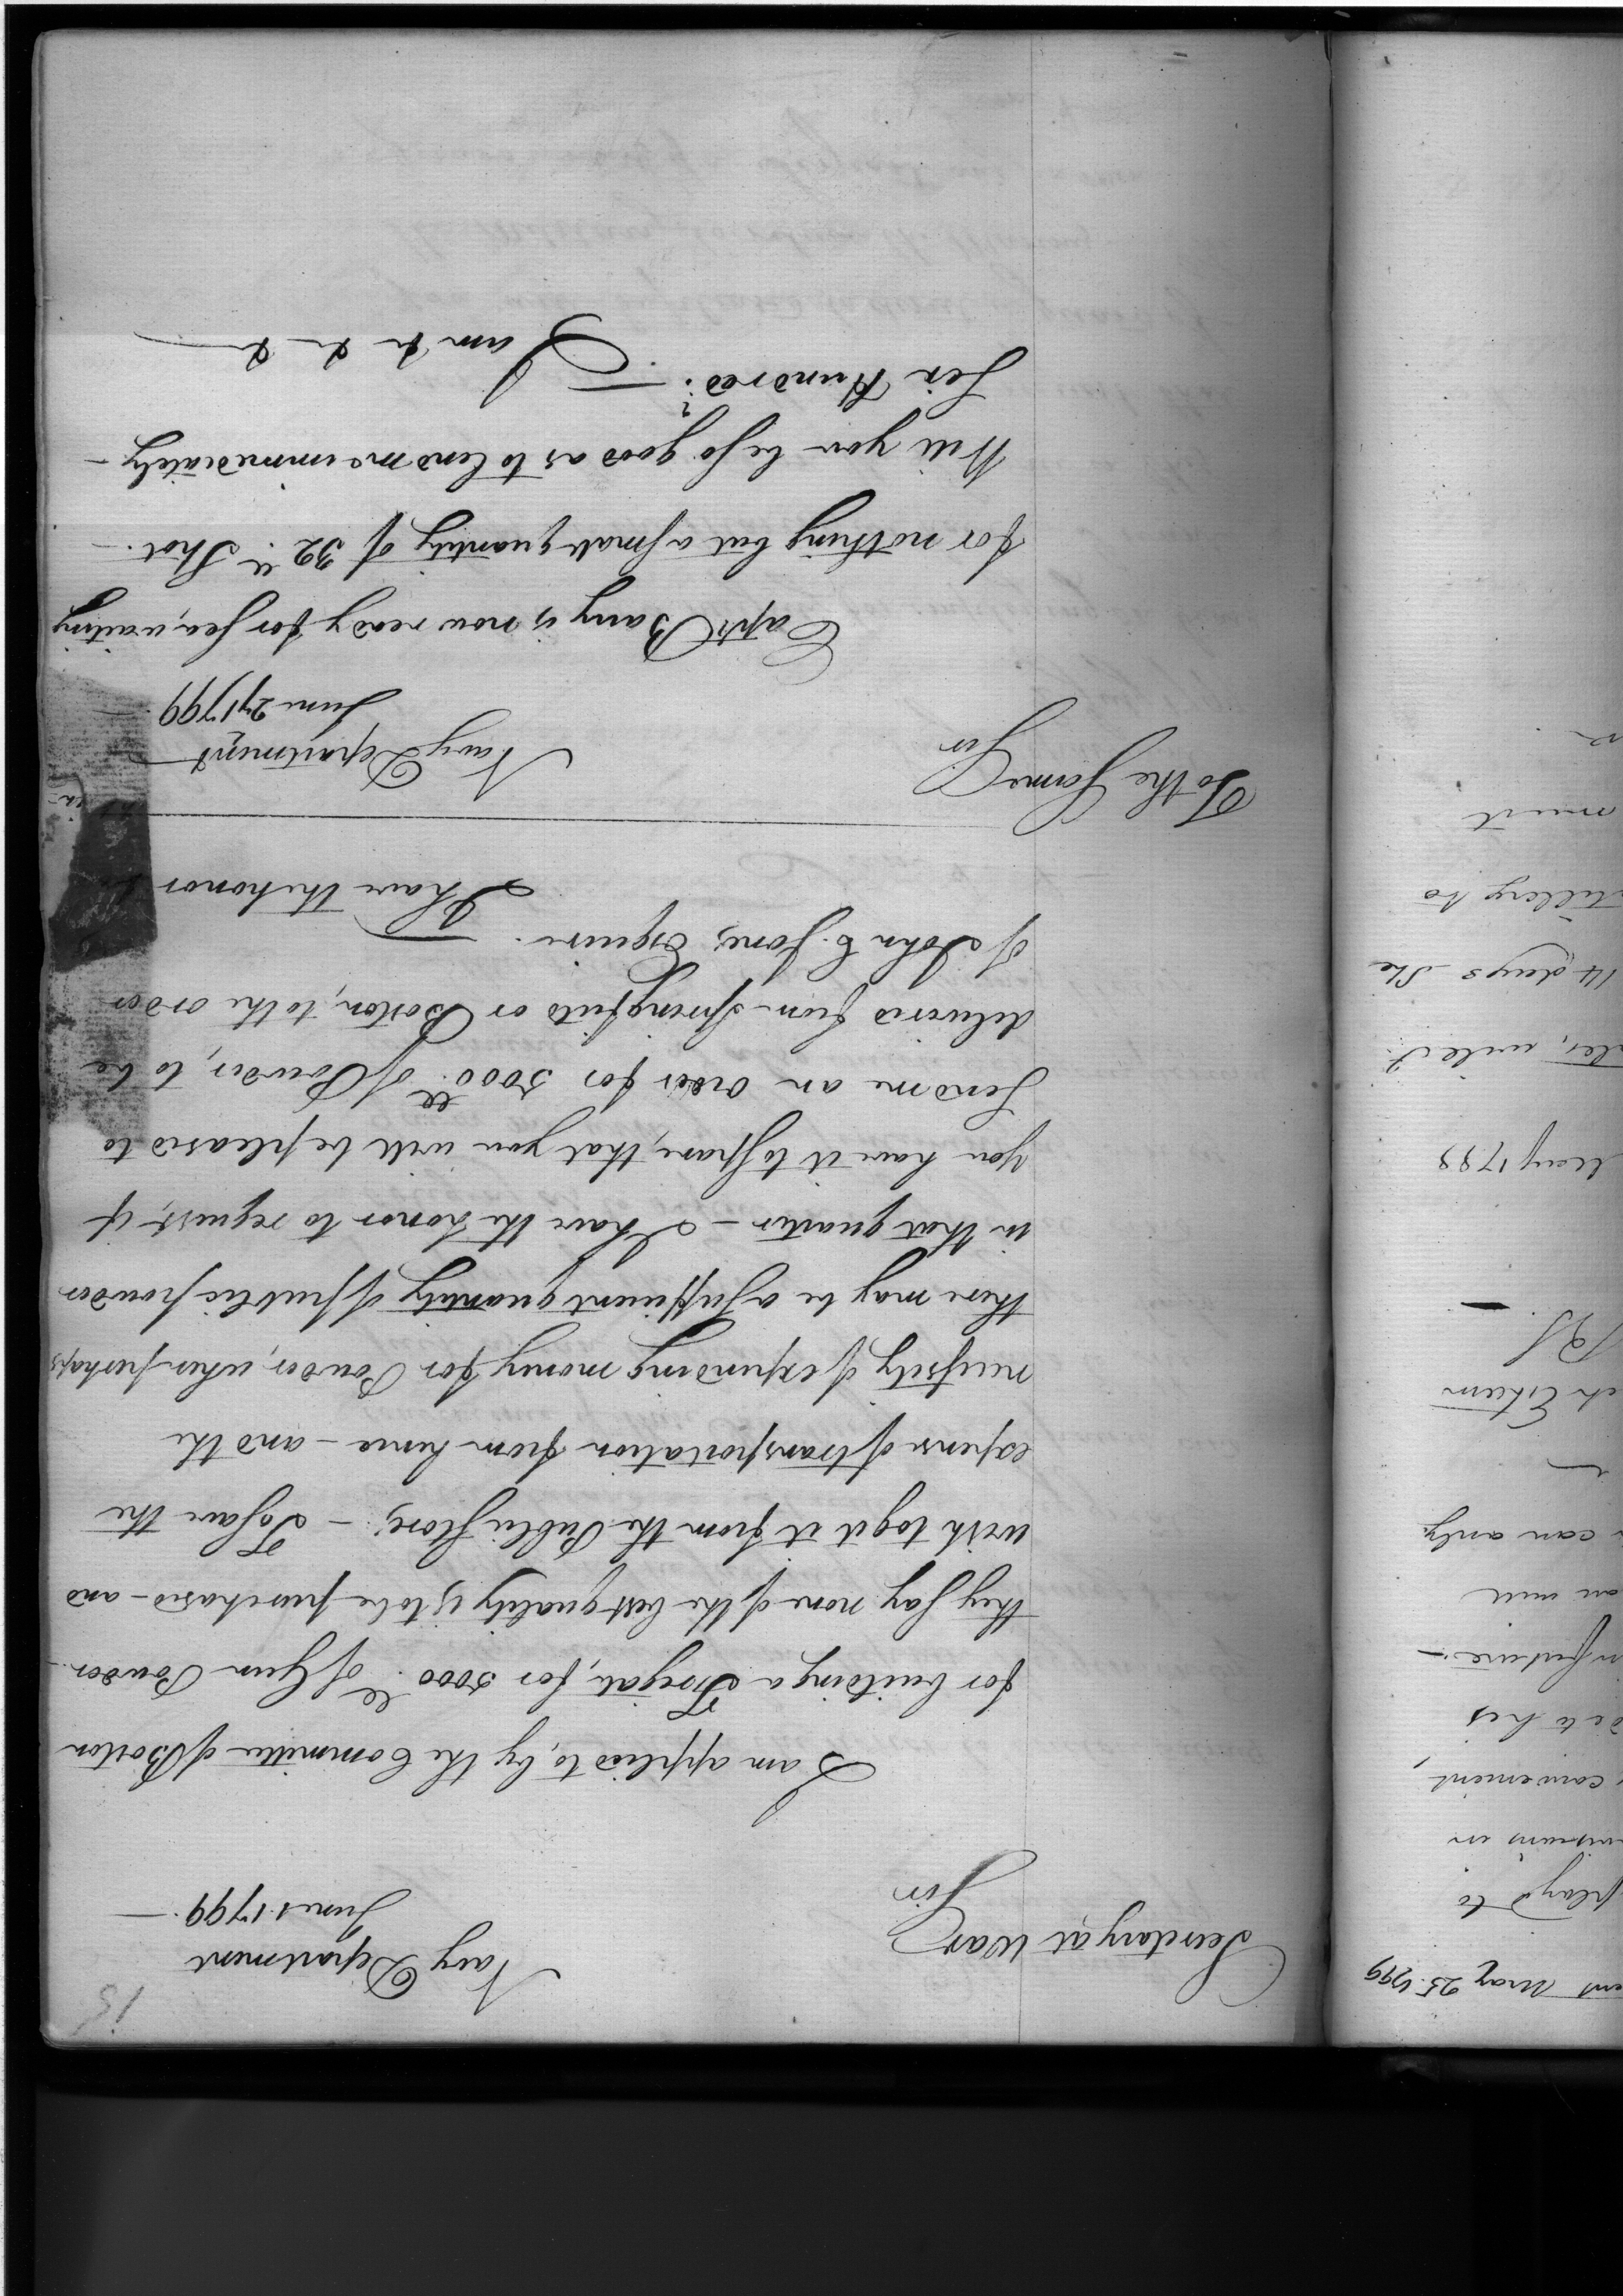 15
Navy Department
June 1. 1799.
Secretary at War
Sir
I am applied to, by the Committee of Boston
for building a Frigate, for 5000 ll. of Gun Powder
they say none of the best quality is to be purchased - and
wish to get it from the Public Store; - To save the
expense of transportation from hence - and the
necessity of expending money for Powder, when perhaps
there may be a sufficient quantity of public powder
in that quarter - I have the honor to request, if
you have it to spare, that you will be pleased to
send me an order for 5000 ll. of Powder, to be
delivered from Springfield or Boston, to the order
of John C. Jones, Esquire. —
I have the honor
To the Same
Navy Department
June 27 1799
Sir
Capt Barry is now ready for sea, waiting
for nothing but a small quantity of 32 ll. Shot. -
Will you be so good as to lend me immediately -
Six Hundred? —
I am & & &
ent May 25. 1799
play'd to
in
convenient,
his
in future -
an
can only
Esteem
May 1798
14 days She
to
must